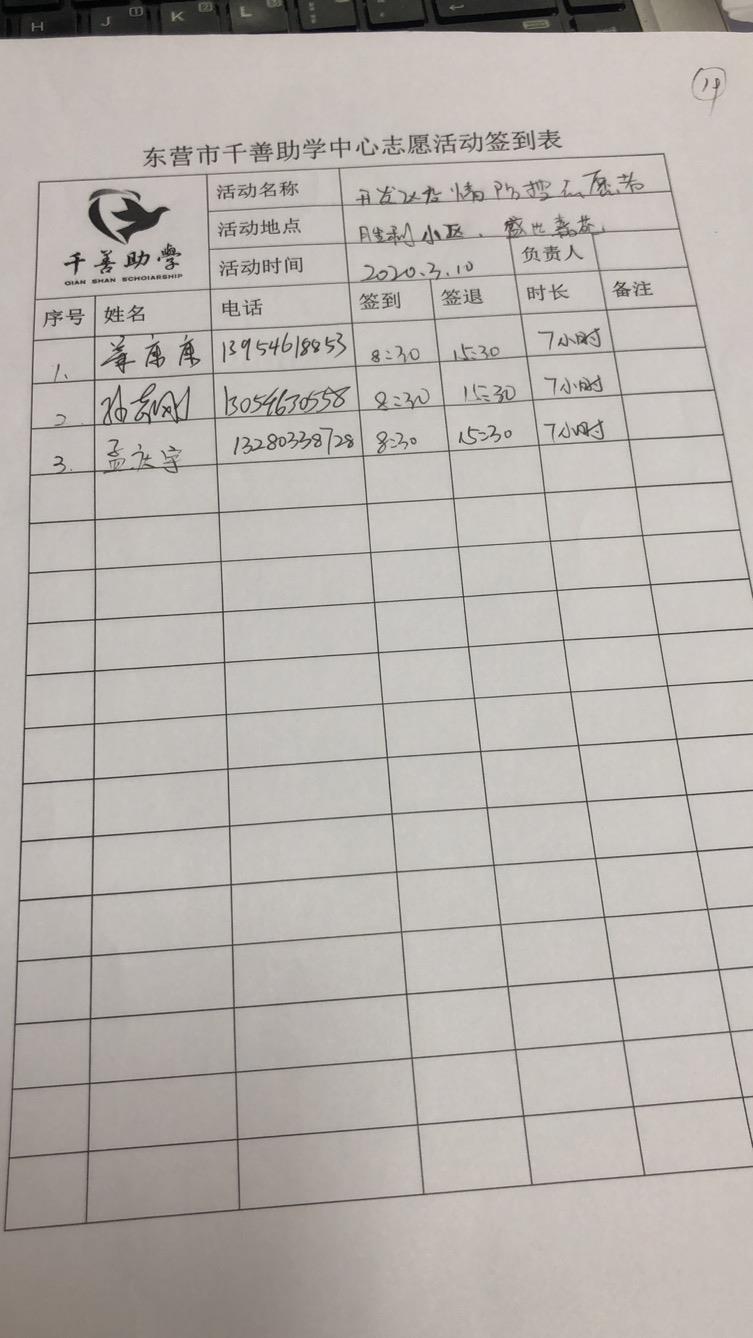 H J K L
19
东营市千善助学中心志愿活动签到表
千善助学
QIAN SHAN SCHOIARSHIP
活动名称 开发区疫情防控志愿者
活动地点 胜利小区、盛世
活动时间 2020.3.10 负责人
序号 姓名 电话 签到 签退 时长 备注
1、 康康 13954618853 8:30 15:30 7小时
2. 孙 13054630558 8:30 15:30 7小时
3. 孟庆宇 13280338728 8:30 15:30 7小时